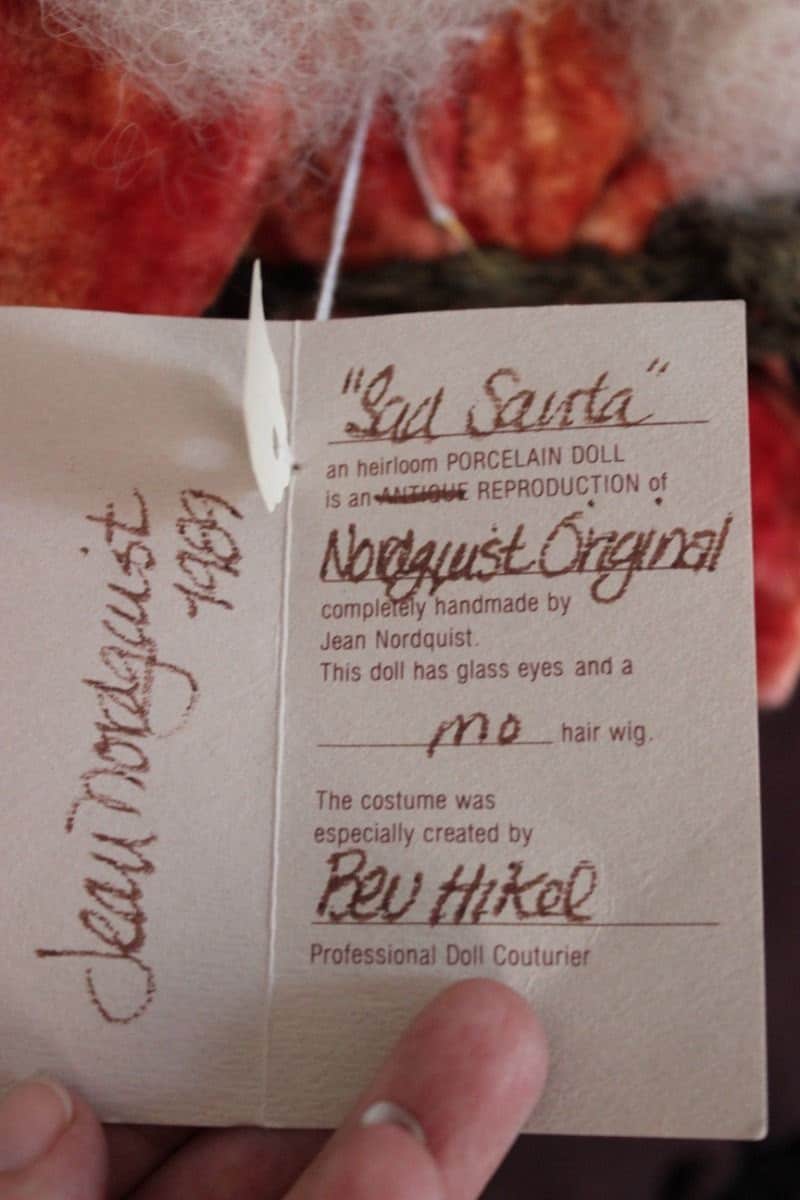 Jean Nordquist
1989
"Sad Santa"
an heirloom PORCELAIN DOLL
is an ANTIQUE REPRODUCTION of
Nordquist Original
completely handmade by
Jean Nordquist.
This doll has glass eyes and a
mo hair wig.
The costume was
especially created by
Bev Hikel
Professional Doll Couturier